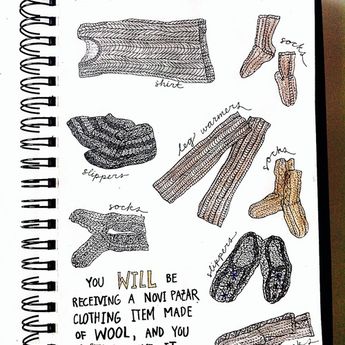 socks
shirt
leg warmers
slippers
socks
socks
slippers
YOU WILL BE
RECEIVING A NOVI PAZAR
CLOTHING ITEM MADE
OF WOOL, AND YOU
IT